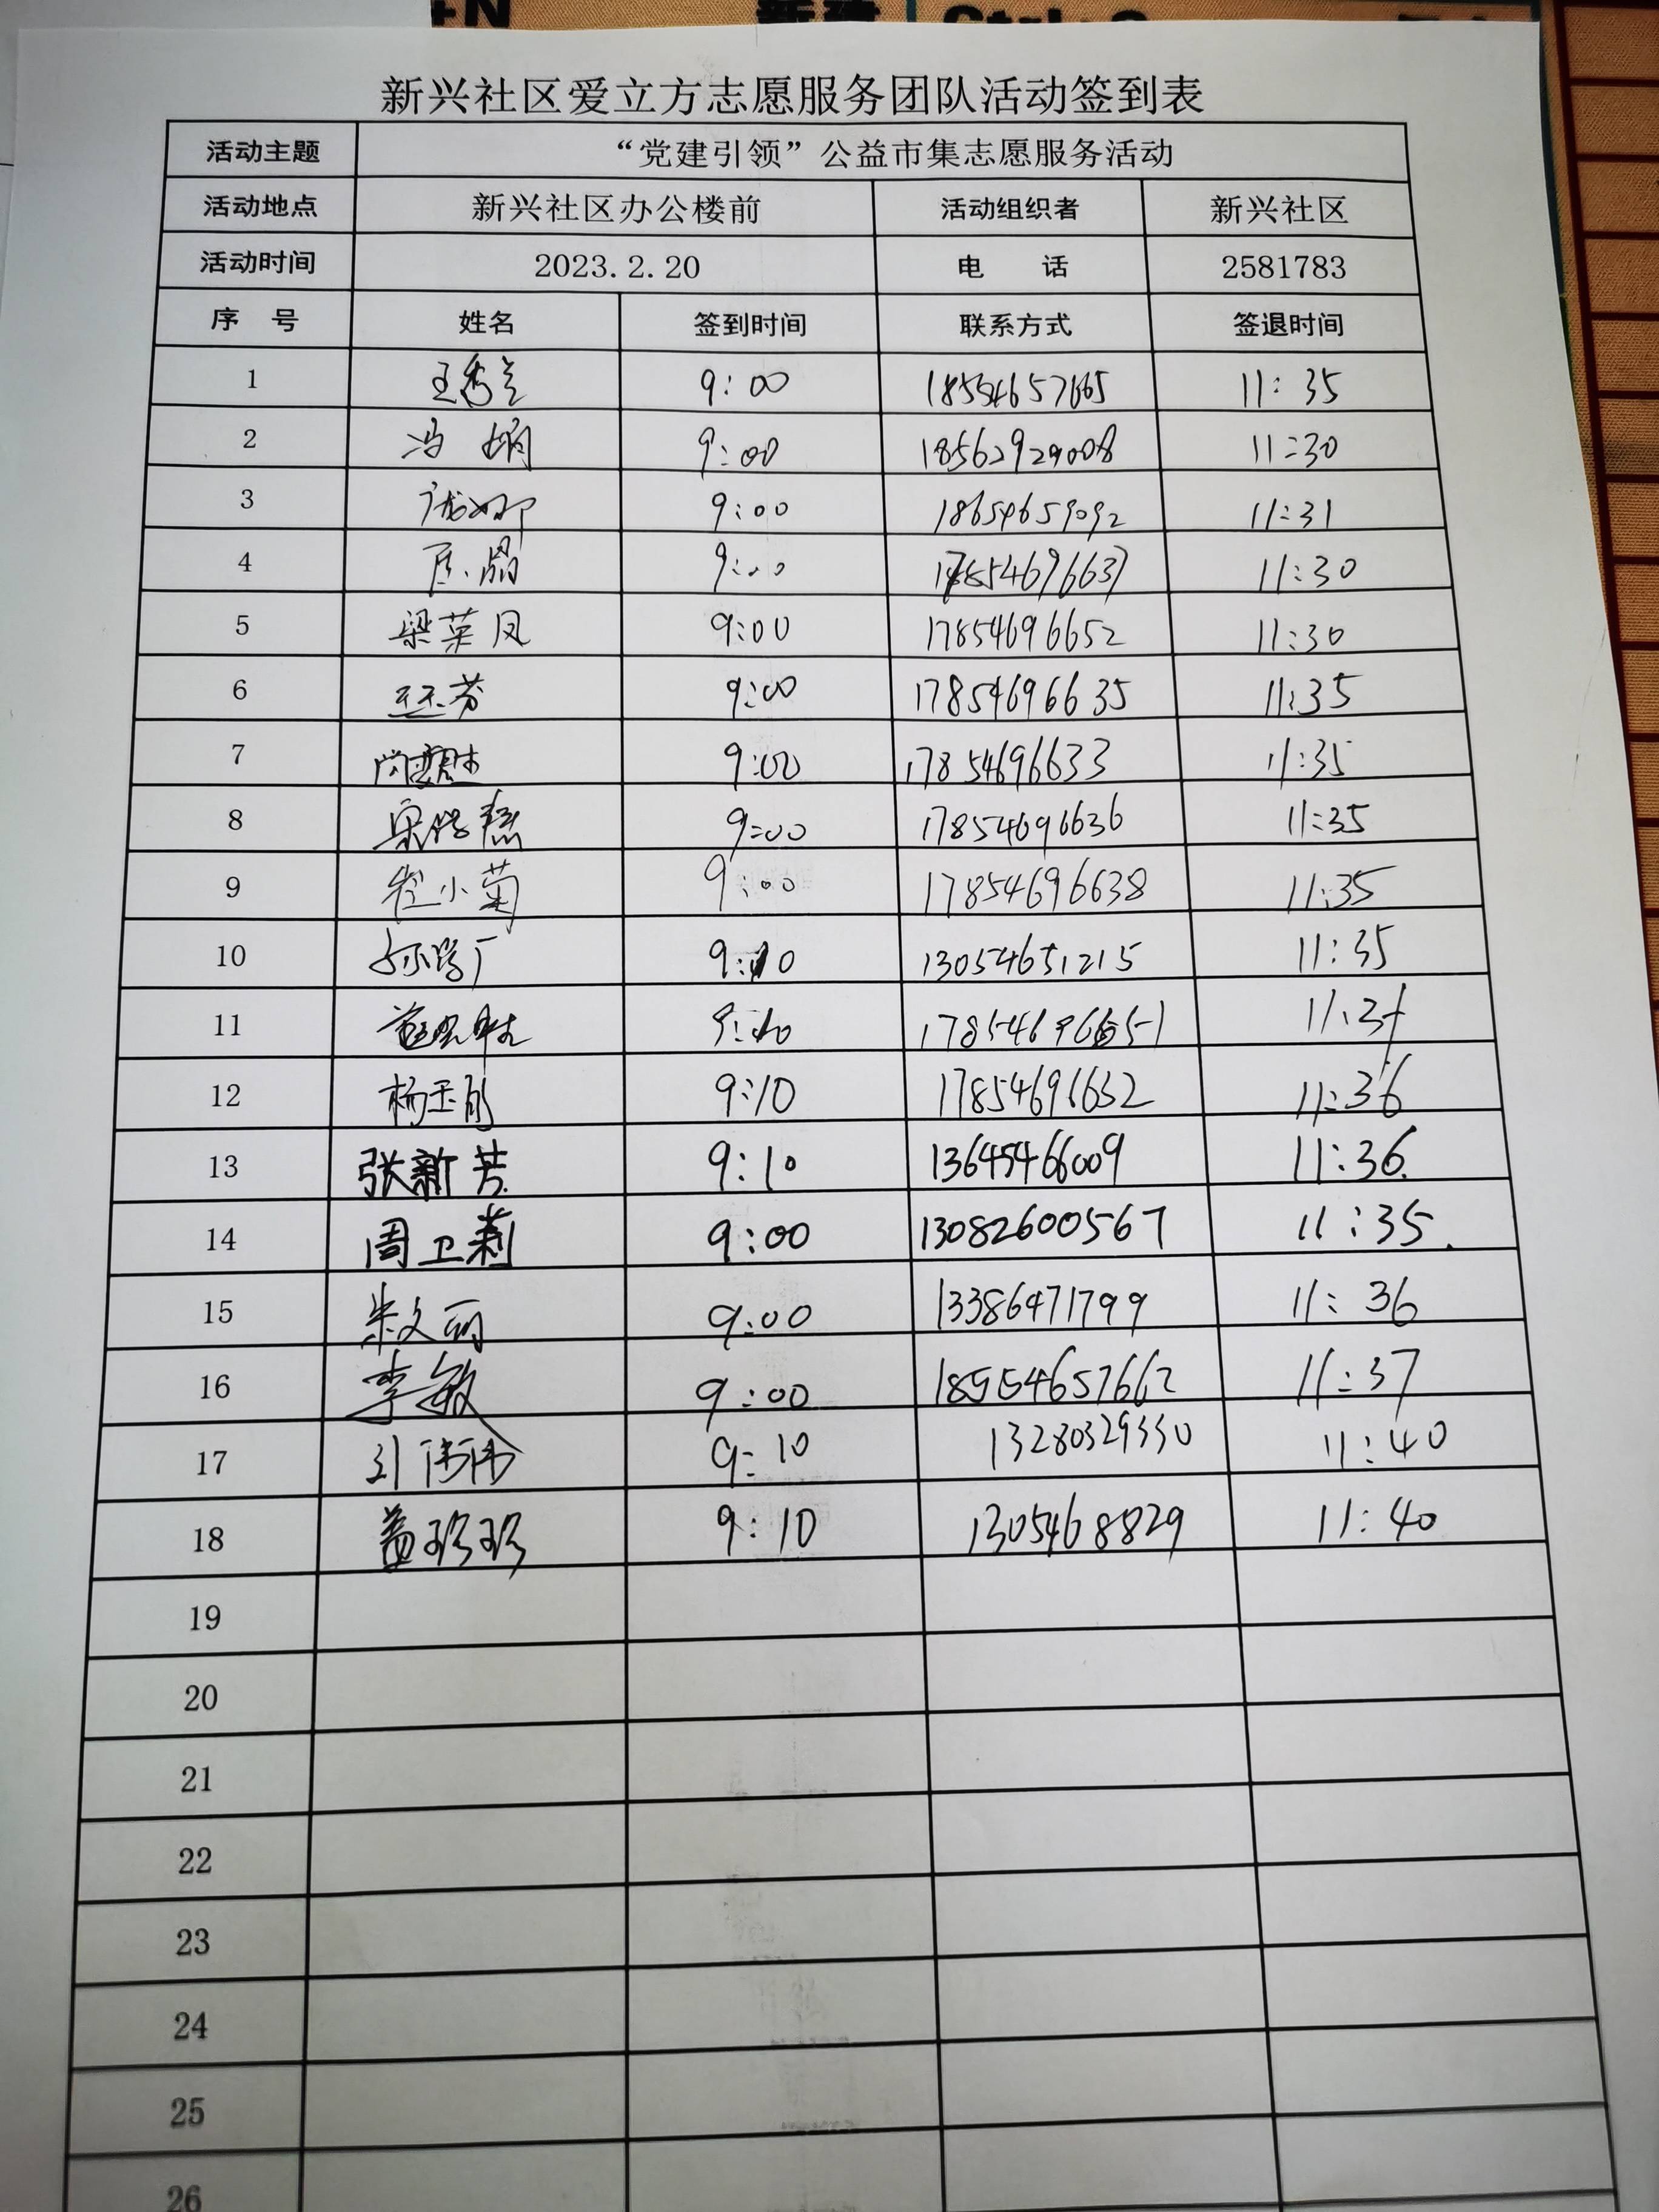 +N 新建 Ctrl+S
新兴社区爱立方志愿服务团队活动签到表
活动主题 “党建引领”公益市集志愿服务活动
活动地点 新兴社区办公楼前 活动组织者 新兴社区
活动时间 2023.2.20 电 话 2581783
序 号 姓名 签到时间 联系方式 签退时间
1 王秀兰 9:00 18554657665 11:35
2 冯娟 9:00 18562929008 11:30
3 庞娜 9:00 18654659092 11:31
4 9:00 17854696637 11:30
5 梁菜凤 9:00 17854696652 11:30
6 9:00 17854696635 11:35
7 9:00 17854696633 11:35
8 9:00 17854696636 11:35
9 崔小菊 9:00 17854696638 11:35
10 9:10 13054651215 11:35
11 9:10 17854696651
12 杨玉 9:10 17854696632 11:36
13 张新芳 9:10 13645466009 11:36.
14 周卫莉 9:00 13082600567 11:35.
15 朱文丽 9:00 13386471799 11:36
16 李敏 9:00 18554657662 11:37
17 刘伟伟 9:10 13280329330 11:40
18 盖珍珍 9:10 1305468829 11:40
19
20
21
22
23
24
25
26